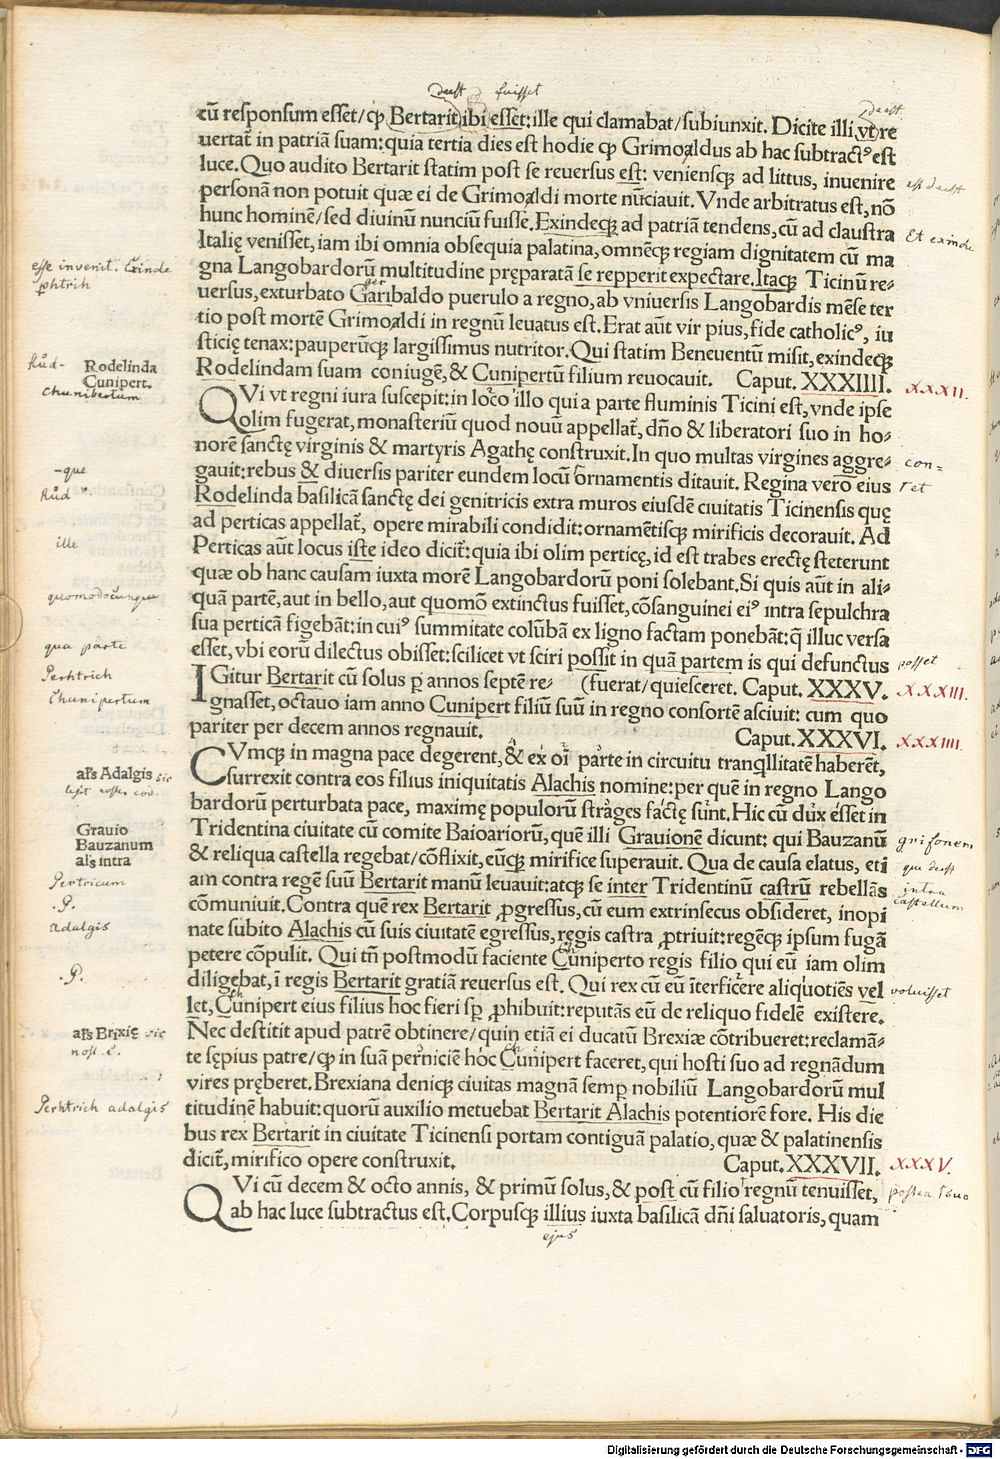 deest fuisset
cū responsum esset/ꝙ Bertarit ibi esset: ille qui clamabat/subiunxit. Dicite illi vt re
deest
uertat̄ in patriā suam: quia tertia dies est hodie ꝙ Grimoaldus ab hac subtractꝰ est
luce. Quo audito Bertarit statim post se reuersus est: veniensqꝫ ad littus, inuenire
est deest
personā non potuit quæ ei de Grimoaldi morte nūciauit. Vnde arbitratus est, nō
hunc hominē/sed diuinū nunciū fuisse. Exindeqꝫ ad patriā tendens, cū ad claustra
Et exinde
Italię venisset, iam ibi omnia obsequia palatina, omnēqꝫ regiam dignitatem cū ma
esse invenit. Exinde
gna Langobardorū multitudine pręparatā se repperit expectare. Itaqꝫ Ticinū re⸗
phtrih
ger
uersus, exturbato Garibaldo puerulo a regno, ab vniuersis Langobardis mēse ter
tio post mortē Grimoaldi in regnū leuatus est. Erat aūt vir pius, fide catholicꝰ, iu
sticię tenax: pauperūqꝫ largissimus nutritor. Qui statim Beneuentū misit, exindeqꝫ
Růd- Rodelinda
Cunipert.
Chunibertum
Rodelindam suam coniugē, & Cunipertū filium reuocauit. Caput. XXXIIII. XXXII.
QVi vt regni iura suscepit: in loco illo qui a parte fluminis Ticini est, vnde ipse
olim fugerat, monasteriū quod nouū appellat̄, dn̄o & liberatori suo in ho⸗
norē sanctę virginis & martyris Agathę construxit. In quo multas virgines aggre⸗
con=
-que
gauit: rebus & diuersis pariter eundem locū ornamentis ditauit. Regina vero eius
r et
Růd
Rodelinda basilicā sanctę dei genitricis extra muros eiusdē ciuitatis Ticinensis quę
ad perticas appellat̄, opere mirabili condidit: ornamētisqꝫ mirificis decorauit. Ad
ille
Perticas aūt locus iste ideo dicit̄: quia ibi olim perticę, id est trabes erectę steterunt
quæ ob hanc causam iuxta morē Langobardorū poni solebant. Si quis aūt in ali⸗
quomodocunque
quā partē, aut in bello, aut quomō extinctus fuisset, cōsanguinei eiꝰ intra sepulchra
sua perticā figebāt: in cuiꝰ summitate colūbā ex ligno factam ponebāt: q̄ illuc versa
qua parte
esset, vbi eorū dilectus obisset: scilicet vt sciri possit in quā partem is qui defunctus
posset
Perhtrich
IGitur Bertarit cū solus ꝑ annos septē re⸗ (fuerat/quiesceret. Caput. XXXV. XXXIII.
Chunipertum
gnasset, octauo iam anno Cunipert filiū suū in regno consortē asciuit: cum quo
pariter per decem annos regnauit. Caput. XXXVI. XXXIIII.
CVmqꝫ in magna pace degerent, & ex oī parte in circuitu tranqllitatē haberēt,
als Adalgis sic
surrexit contra eos filius iniquitatis Alachis nomine: per quē in regno Lango
bardorū perturbata pace, maximę populorū strages factę sunt. Hic cū dux esset in
Grauio
Bauzanum
als intra
Tridentina ciuitate cū comite Baioariorū, quē illi Grauionē dicunt: qui Bauzanū
grifonem
& reliqua castella regebat/cōflixit, eūqꝫ mirifice superauit. Qua de causa elatus, eti
que deest
Pertricum
am contra regē suū Bertarit manū leuauit: atqꝫ se inter Tridentinū castrū rebellās
intra
castellum
.P.
cōmuniuit. Contra quē rex Bertarit ꝓgressus, cū eum extrinsecus obsideret, inopi
adalgis
nate subito Alachis cū suis ciuitatē egressus, regis castra ꝓtriuit: regēqꝫ ipsum fugā
Ch
petere cōpulit. Qui tn̄ postmodū faciente Cuniperto regis filio qui eū iam olim
.P.
diligebat, ī regis Bertarit gratiā reuersus est. Qui rex cū eū īterficere aliquotiēs vel
voluisset
Ch
let, Cunipert eius filius hoc fieri sꝑ ꝓhibuit: reputās eū de reliquo fidelē existere.
als Brixię sic
nost. c.
Nec destitit apud patrē obtinere/quin etiā ei ducatū Brexiæ cōtribueret: reclamā⸗
Ch
te sępius patre/ꝙ in suā perniciē hoc Cunipert faceret, qui hosti suo ad regnādum
vires pręberet. Brexiana deniqꝫ ciuitas magnā semꝑ nobiliū Langobardorū mul
Perhtrich adalgis
titudinē habuit: quorū auxilio metuebat Bertarit Alachis potentiorē fore. His die
bus rex Bertarit in ciuitate Ticinensi portam contiguā palatio, quæ & palatinensis
dicit̄, mirifico opere construxit. Caput. XXXVII. XXXV.
QVi cū decem & octo annis, & primū solus, & post cū filio regnū tenuisset,
postea suo
ab hac luce subtractus est. Corpusqꝫ illius iuxta basilicā dn̄i saluatoris, quam
ejus
Digitalisierung gefördert durch die Deutsche Forschungsgemeinschaft - DFG